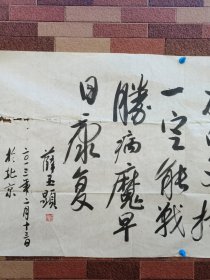 一定能战
胜病魔早
日康复
薛玉
二〇一三年二月十三日
於北京